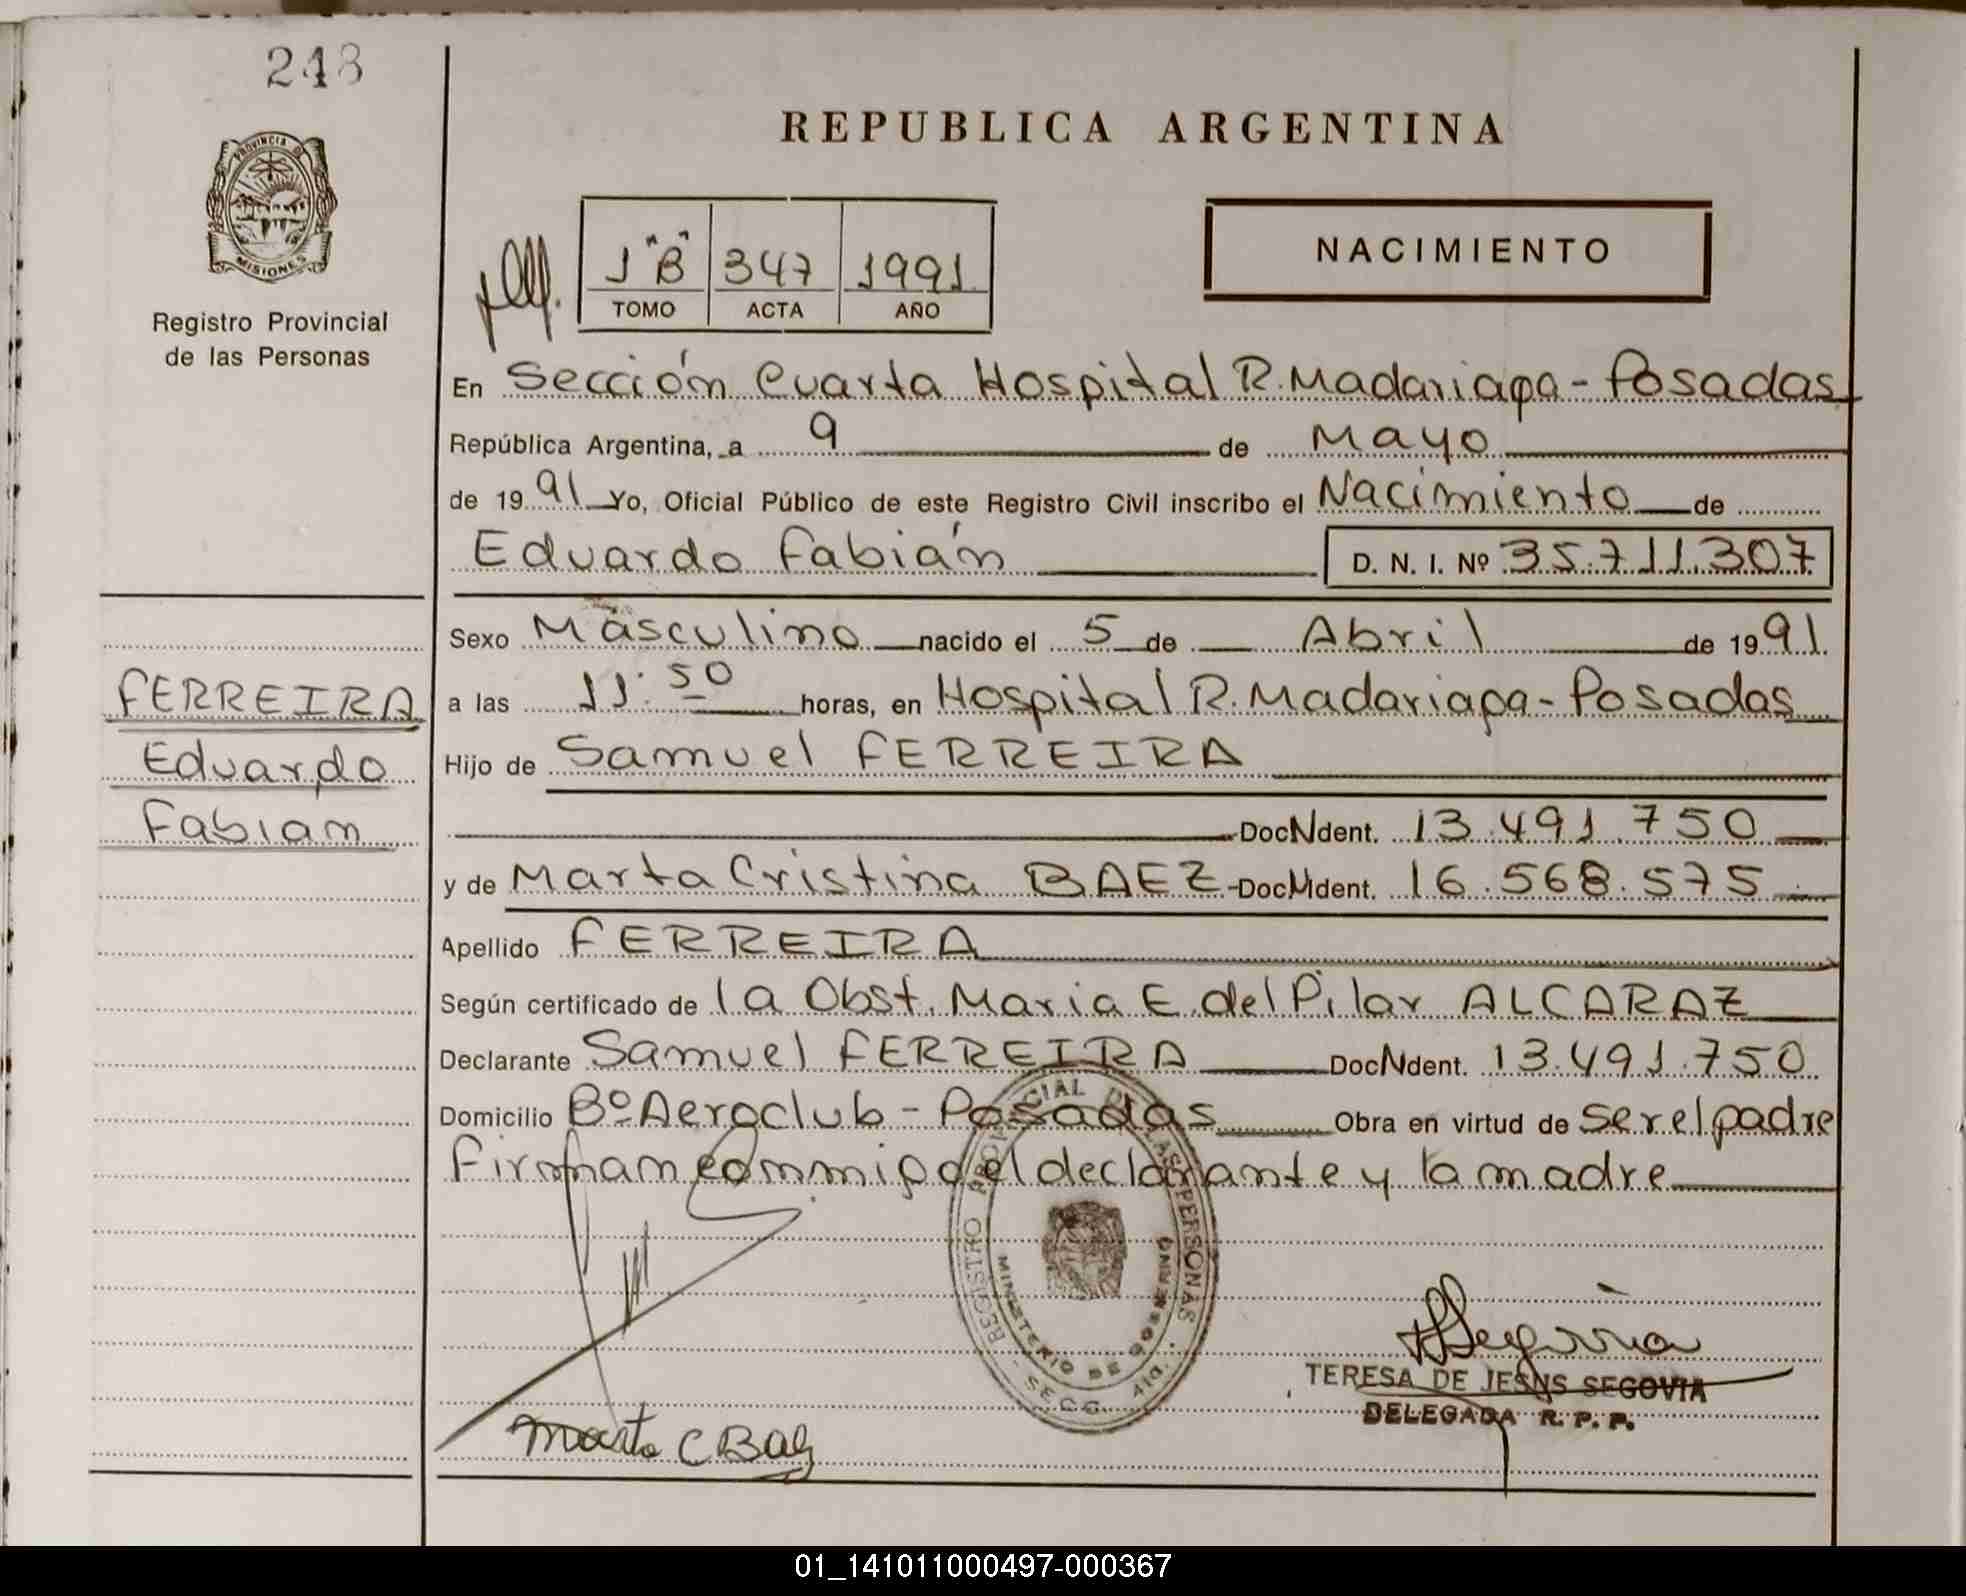 248
PROVINCIA DE
MISIONES
Registro Provincial
de las Personas
REPUBLICA ARGENTINA
1 "B" 347 1991
TOMO ACTA AÑO
NACIMIENTO
En Sección Cuarta Hospital R. Madariaga - Posadas
República Argentina, a 9 de Mayo
de 1991 Yo, Oficial Público de este Registro Civil inscribo el Nacimiento de
Eduardo Fabián D. N. I. Nº 35.711.307
Sexo Masculino nacido el 5 de Abril de 1991
a las 11:50 horas, en Hospital R. Madariaga - Posadas
Hijo de Samuel FERREIRA
Doc Ident. 13.491.750
y de Marta Cristina BAEZ Doc Ident. 16.568.575
Apellido FERREIRA
Según certificado de la Obst. Maria E. del Pilar ALCARAZ
Declarante Samuel FERREIRA Doc Ident. 13.491.750
Domicilio Bº Aeroclub - Posadas Obra en virtud de ser el padre
Firman conmigo el declarante y la madre
FERREIRA
Eduardo
Fabian
REGISTRO PROVINCIAL DE LAS PERSONAS
MINISTERIO DE GOBIERNO
SECC. 4ta.
Segovia
TERESA DE JESUS SEGOVIA
DELEGADA R. P. P.
Marta C Baez
01_141011000497-000367